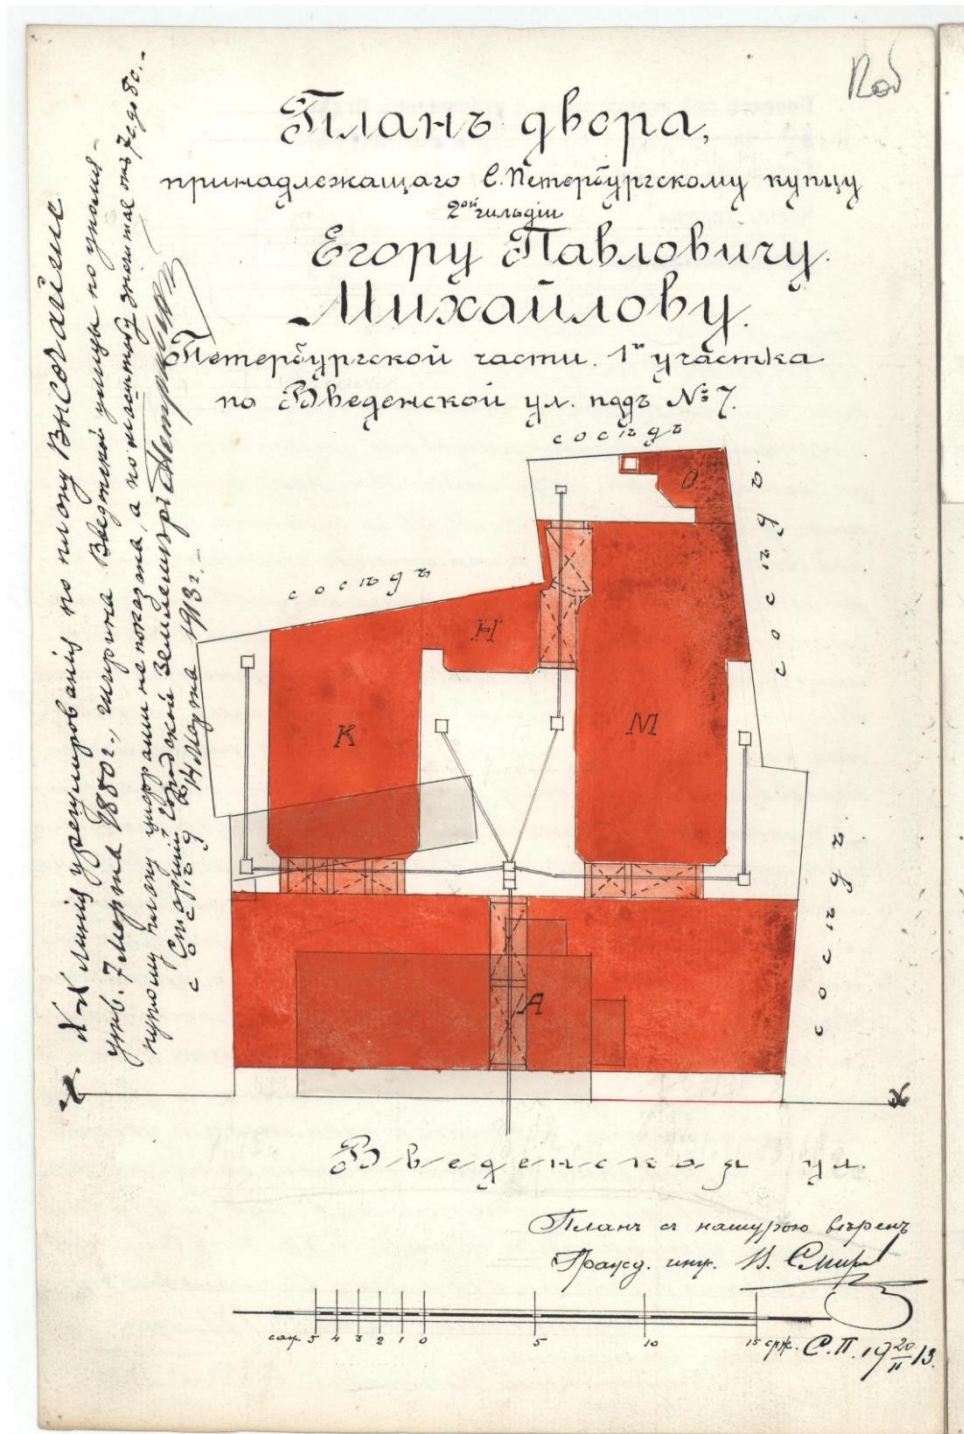 Планъ двора,
принадлежащаго С. Петербургскому купцу
2ой гильдіи
Егору Павловичу
Михайлову.
Петербургской части. 1го участка
по Введенской ул. подъ № 7.
Х-Х линія урегулированія по плану Высочайше
утв. 7 Марта 1880 г., ширина Введенской улицы по упомя-
нутому плану цифрами не показана, а по масштабу значится отъ 7с. до 8с.-
Старшій Городской Землемѣръ
14 Марта 1913 г.-
сосѣдъ
сосѣдъ
сосѣдъ
сосѣдъ
сосѣдъ
О
Н
К
М
А
Х
Х
Введенская ул.
Планъ съ натурою вѣренъ
Гражд. инж.
саж. 5 4 3 2 1 0 5 10 15 саж.
С.П. 19 20/II 13.